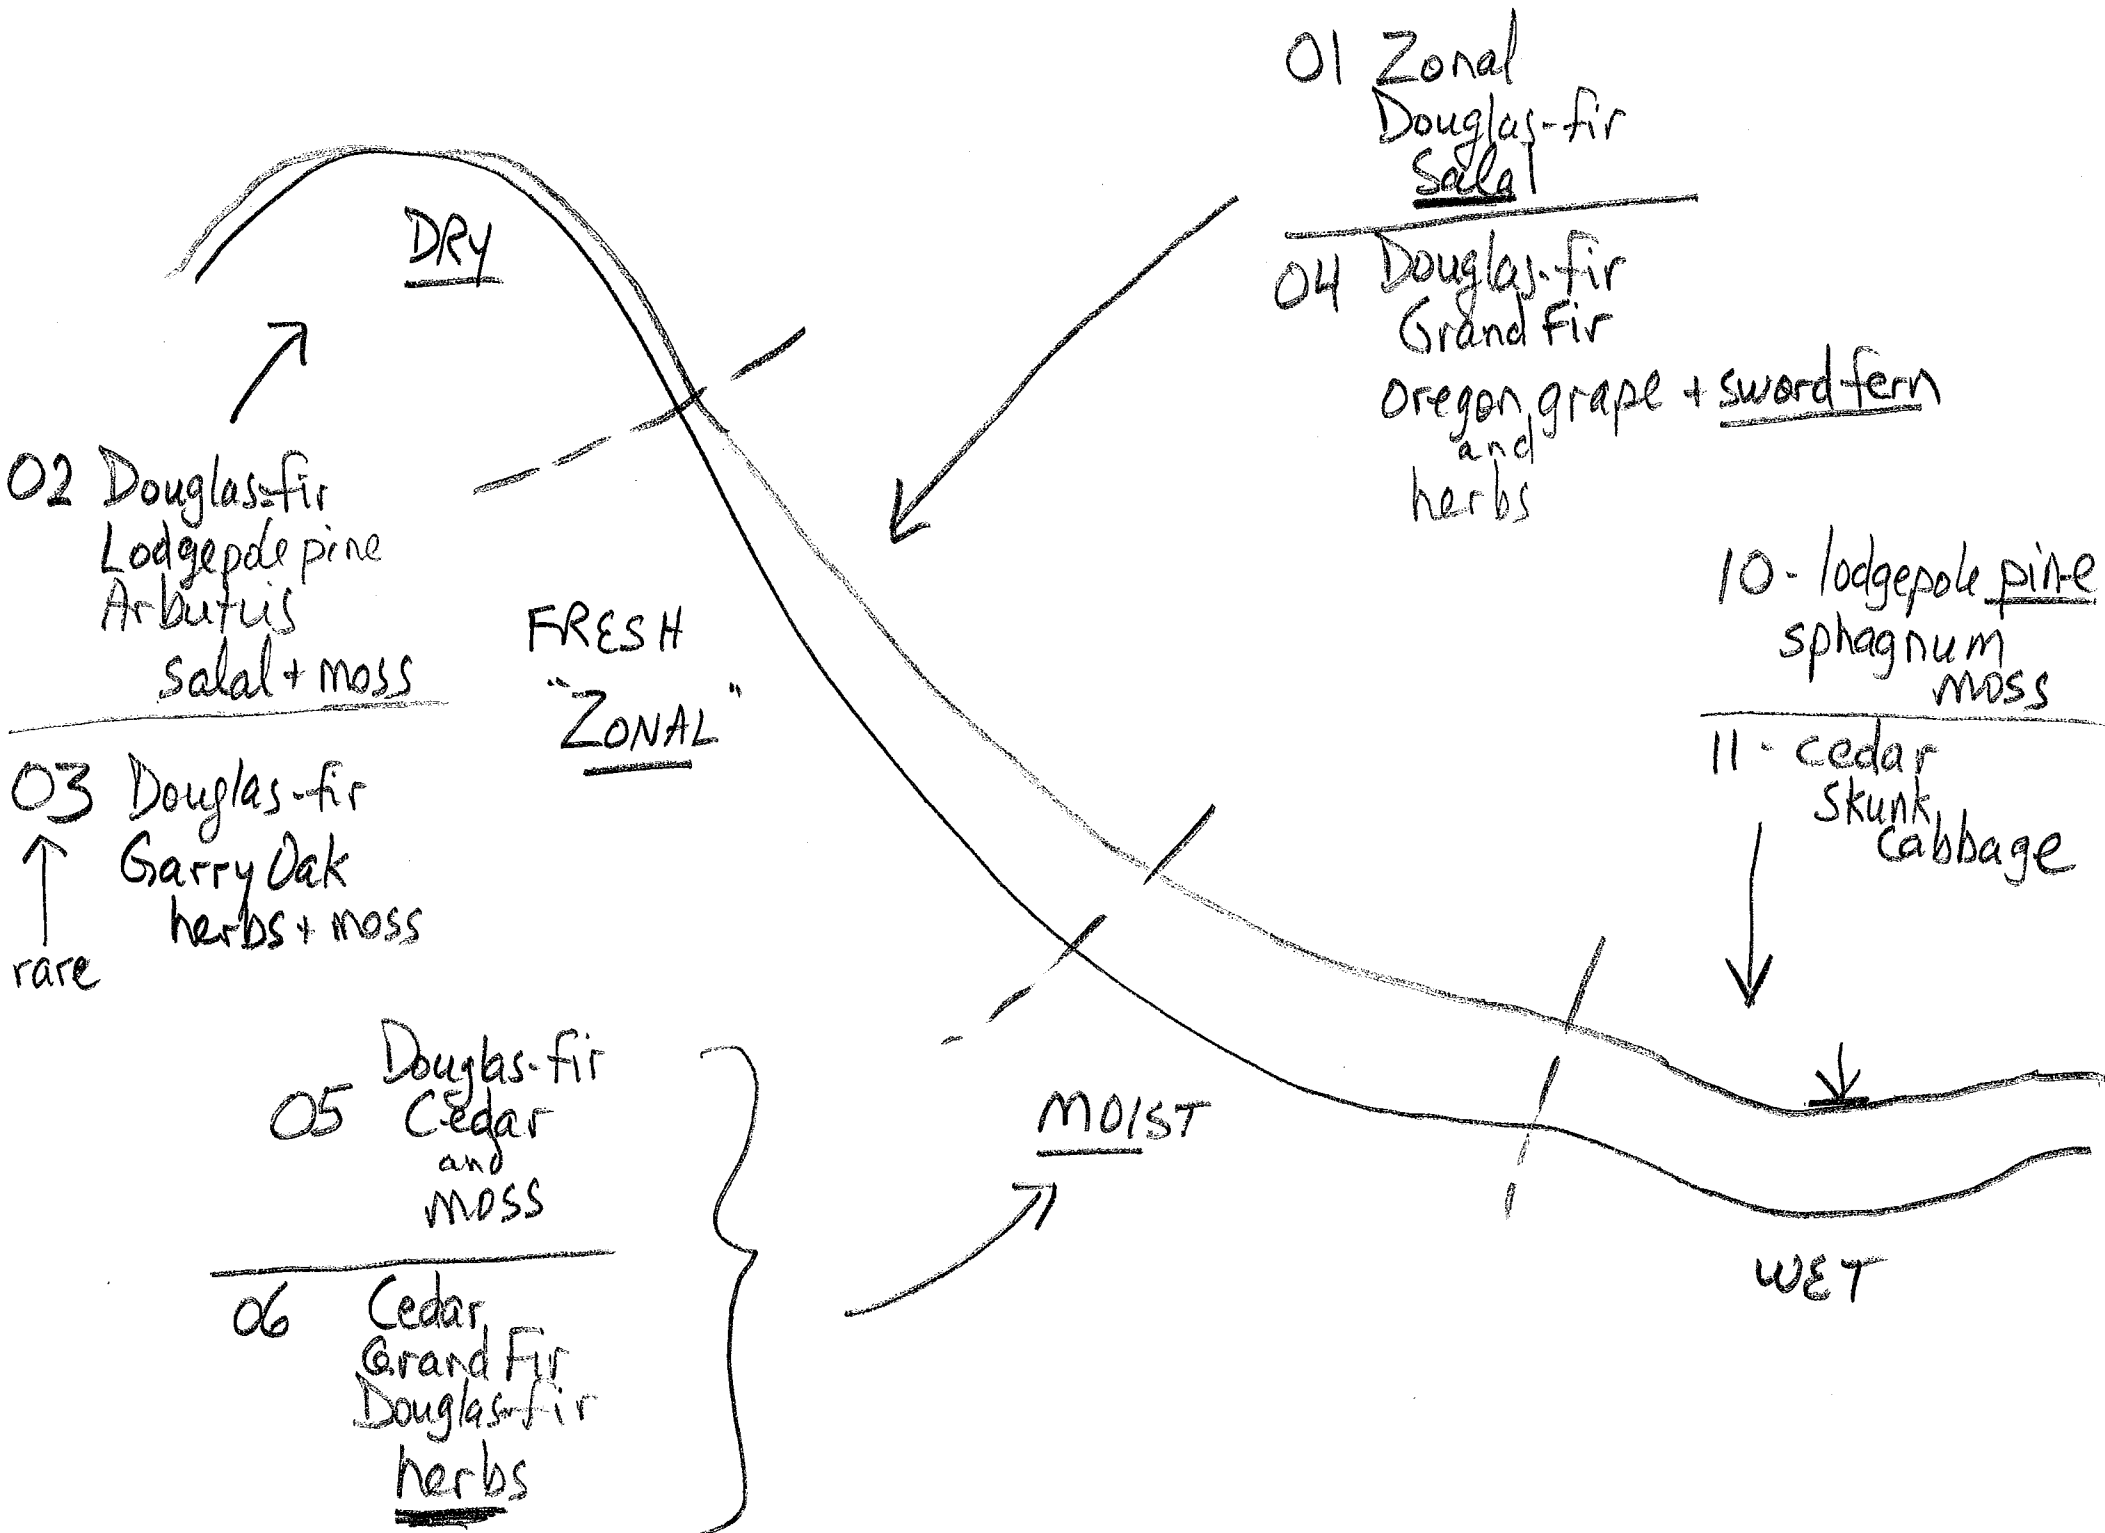 01 Zonal
Douglas-fir
Salal
04 Douglas-fir
Grand Fir
Oregon grape + sword fern
and
herbs
DRY
02 Douglas-fir
Lodgepole pine
Arbutus
salal + moss
03 Douglas-fir
Garry Oak
herbs + moss
rare
FRESH
"ZONAL"
10 - lodgepole pine
sphagnum
moss
11 - cedar
skunk
cabbage
05 Douglas-fir
Cedar
and
moss
06 Cedar
Grand Fir
Douglas-fir
herbs
MOIST
WET